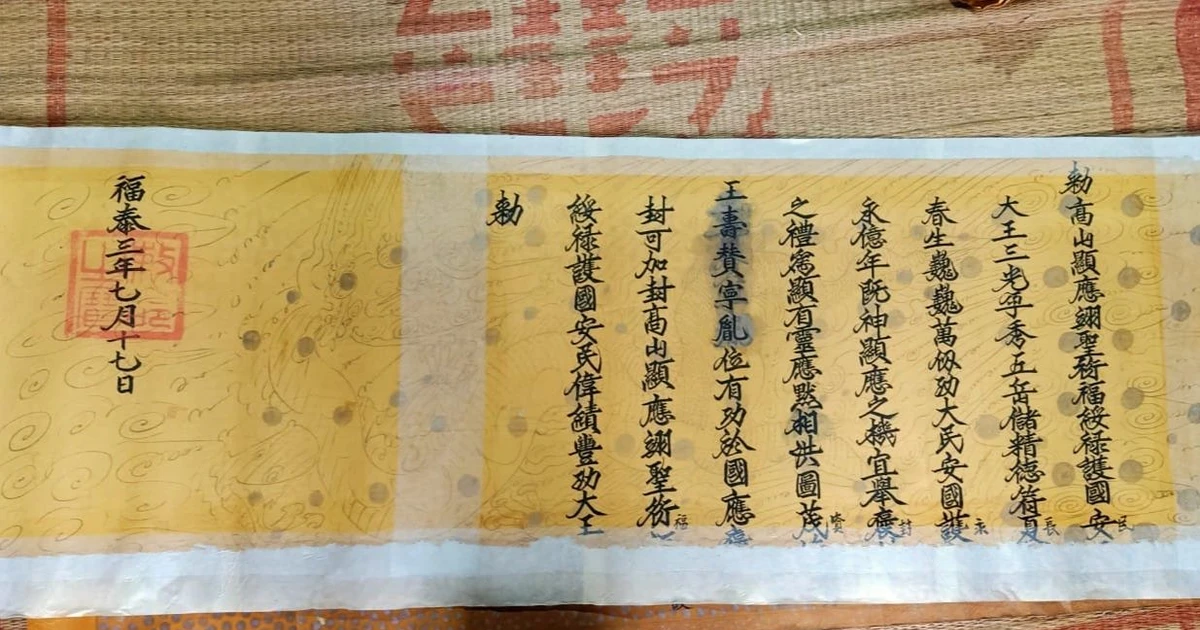 勅高山顯應翊聖衍福綏禄護國安民
大王三光孕秀五岳儲精德符夏長
春生巍巍萬仭功大民安國護永
永億年既神顯應之機宜舉褒封
之禮顯有靈應黙相洪圖茂
王壽賛寧胤位有功於國應
封可加封高山顯應翊聖衍福
綏禄護國安民偉績豐功大王
勅
福泰三年七月十七日